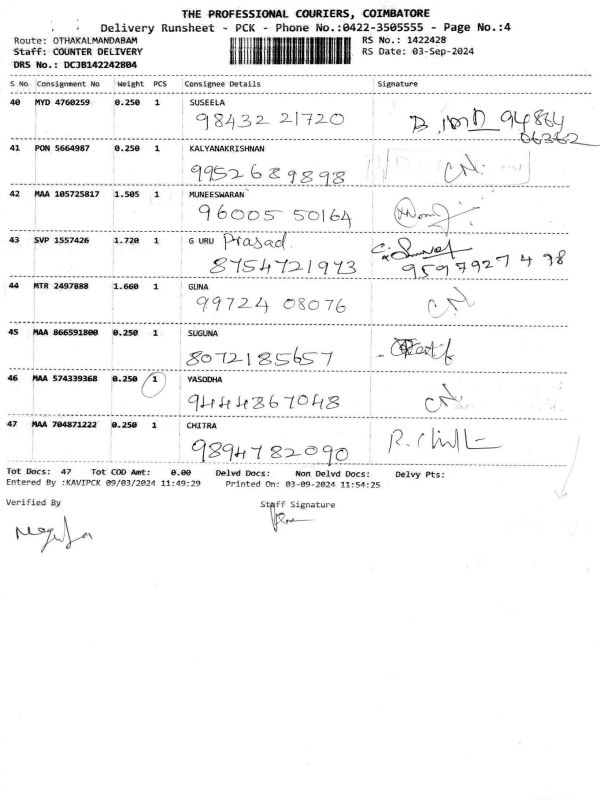 THE PROFESSIONAL COURIERS, COIMBATORE
Delivery Runsheet - PCK - Phone No.:0422-3505555 - Page No.:4
Route: OTHAKALMANDABAM RS No.: 1422428
Staff: COUNTER DELIVERY RS Date: 03-Sep-2024
DRS No.: DCJB142242804
S No Consignment No Weight PCS Consignee Details Signature
40 MYD 4760259 0.250 1 SUSEELA
98432 21720 94864
06362
41 PON 5664987 0.250 1 KALYANAKRISHNAN
9952689898 CN
42 MAA 105725817 1.505 1 MUNEESWARAN
96005 50164
43 SVP 1557426 1.720 1 G URU Prasad
8754721973 9597927498
44 MTR 2497888 1.660 1 GUNA
99724 08076 CN
45 MAA 866591800 0.250 1 SUGUNA
8072185657
46 MAA 574339368 0.250 1 YASODHA
9444867048 CN
47 MAA 704871222 0.250 1 CHITRA
9894782090
Tot Docs: 47 Tot COD Amt: 0.00 Delvd Docs: Non Delvd Docs: Delvy Pts:
Entered By :KAVIPCK 09/03/2024 11:49:29 Printed On: 03-09-2024 11:54:25
Verified By Staff Signature